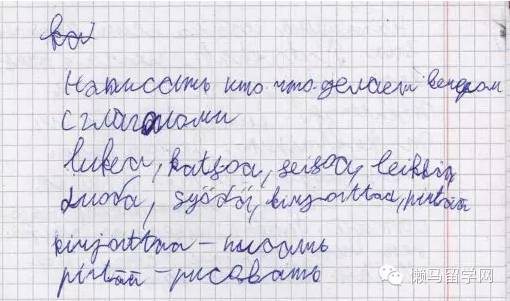 Написать кто что делает вечером
с глаголами
lukea, katsoa, seisoa, leikkiä
juoda, syödä, kirjoittaa, piirtää
kirjoittaa – писать
piirtää – рисовать
懒马留学网